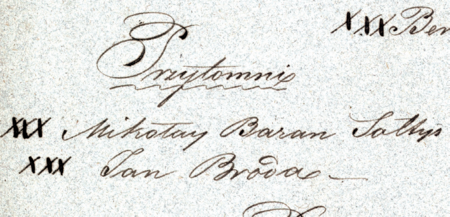 XXX Ben
Przytomni
XXX Mikołay Baran Sołtys
XXX Jan Broda